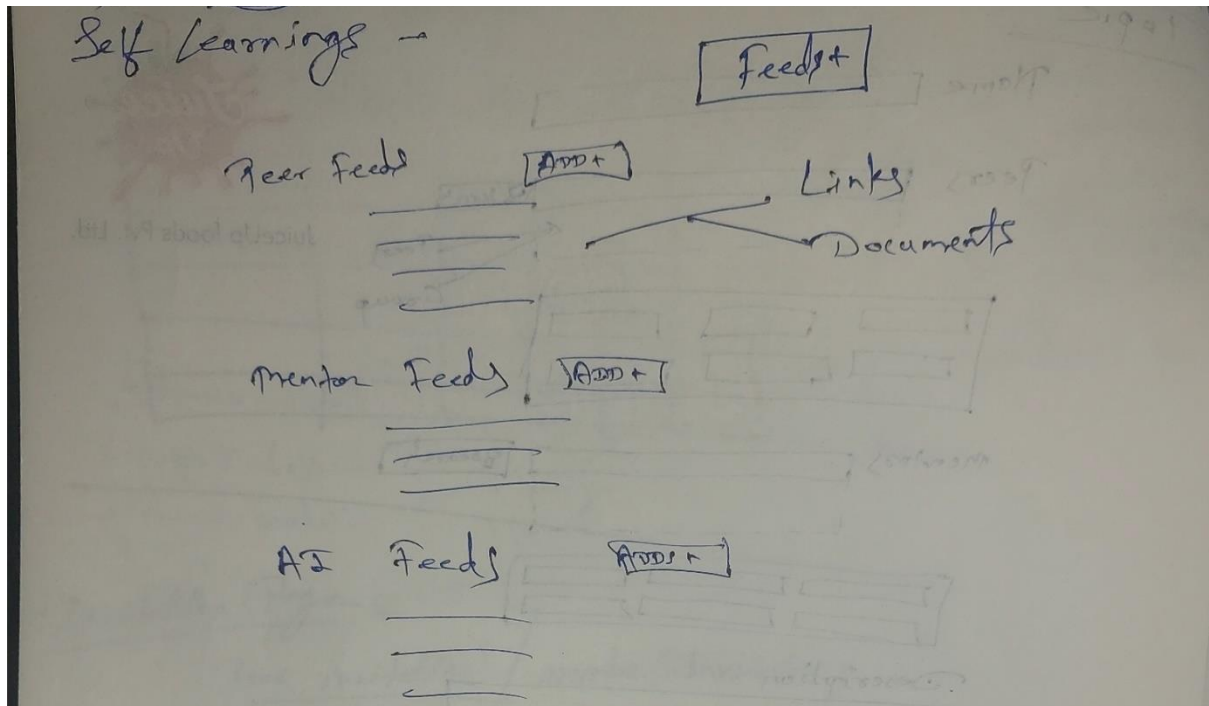 Self Learnings -
Feeds+
Peer Feeds ADD+
Links
Documents
Mentor Feeds ADD+
AI Feeds ADDS+